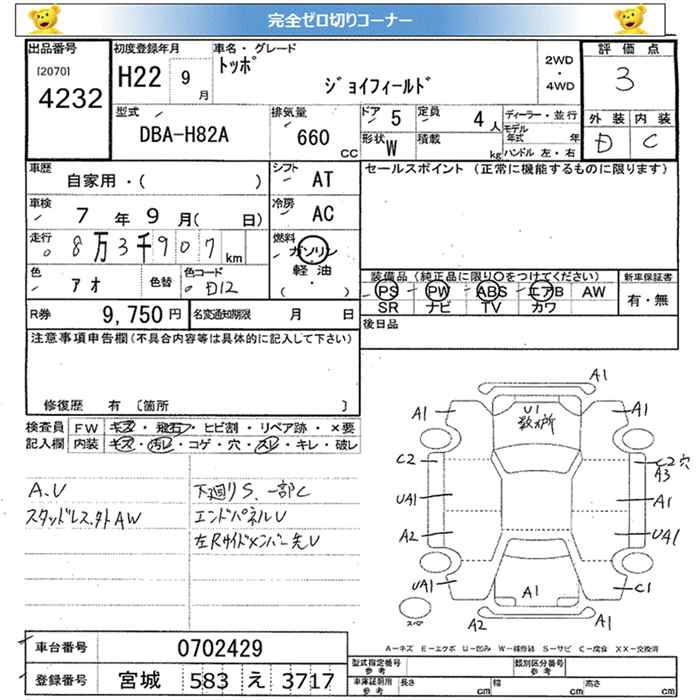 完全ゼロ切りコーナー
出品番号 初度登録年月 車名・グレード 評価点
[2070]
4232
H22 9月
トッポ
ジョイフィールド
2WD
・
4WD
3
型式 排気量 ドア 5 定員 4人 ディーラー・並行 外装 内装
DBA-H82A 660 CC
形状 W 積載 kg
モデル年式 年
ハンドル 左・右
D C
車歴 シフト AT セールスポイント (正常に機能するものに限ります)
自家用・( )
車検 7年 9月( 日) 冷房 AC
走行 8万3千907km 燃料 ガソリン
軽油
(・)
色 アオ 色替 色コード D12
装備品(純正品に限り〇をつけてください) 新車保証書
PS PW ABS エアB AW 有・無
SR ナビ TV カワ
R券 9,750円 名変通知期限 月 日 後日品
注意事項申告欄(不具合内容等は具体的に記入して下さい)
修復歴 有 〔箇所 〕
検査員 FW キズ・飛石・ヒビ割・リペア跡・×要
記入欄 内装 キズ・汚レ・コゲ・穴・スレ・キレ・破レ
A、U 下廻りS、一部C
スタッドレス、外AW エンドパネルU
左Rサイドメンバー先U
A1
A1 U1 A1
数ヶ所
C2 C2穴
A3
UA1 A1
A2 UA1
UA1 A1 C1
スペア A2 A1
A-キズ E-エクボ U-凹み W-補修跡 S-サビ C-腐食 XX-交換済
車台番号 0702429
型式指定番号 参考 類別区分番号 参考
登録番号 宮城 583 え 3717
車庫証明用 参考 長さ cm 幅 cm 高さ cm